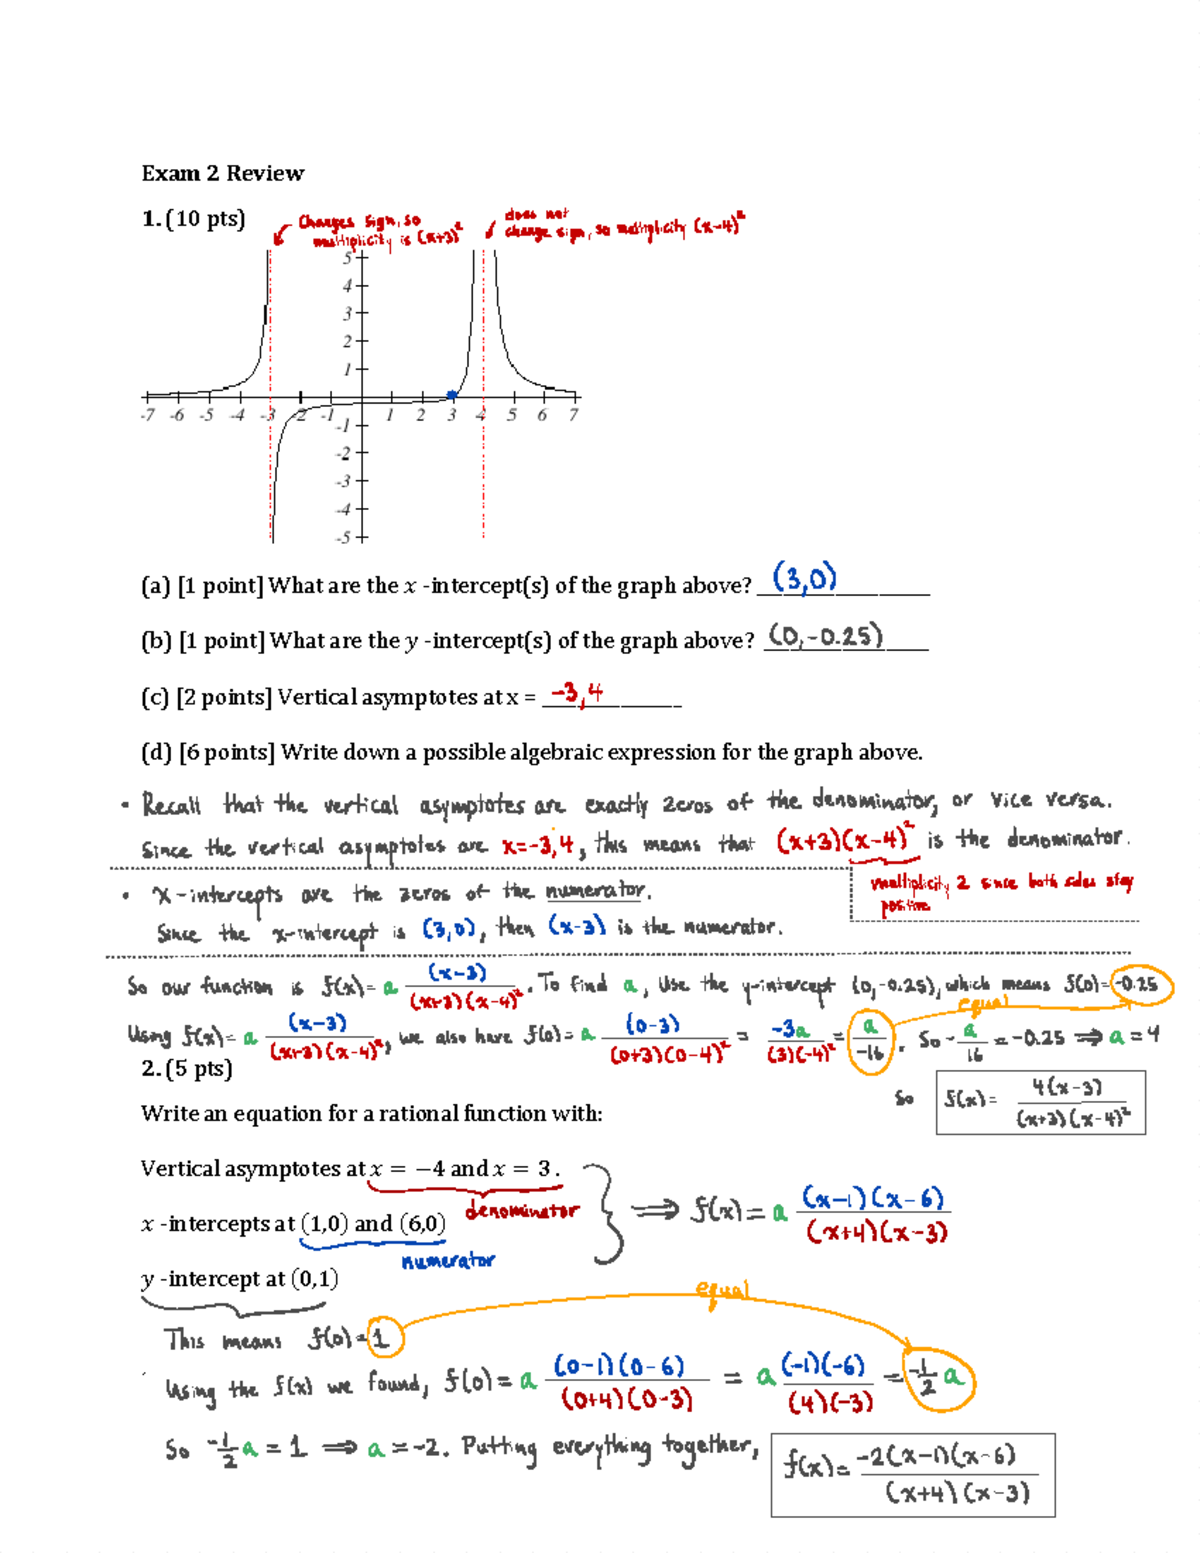 Exam 2 Review
1. (10 pts)
Changes sign, so
multiplicity is (x+3)²
does not
change sign, so multiplicity (x-4)²
5
4
3
2
1
-7 -6 -5 -4 -3 -2 -1 1 2 3 4 5 6 7
-1
-2
-3
-4
-5
(a) [1 point] What are the x -intercept(s) of the graph above? (3,0)
(b) [1 point] What are the y -intercept(s) of the graph above? (0,-0.25)
(c) [2 points] Vertical asymptotes at x = -3,4
(d) [6 points] Write down a possible algebraic expression for the graph above.
• Recall that the vertical asymptotes are exactly zeros of the denominator, or vice versa.
Since the vertical asymptotes are x=-3,4, this means that (x+3)(x-4)² is the denominator.
multiplicity 2 since both sides stay
positive
• x-intercepts are the zeros of the numerator.
Since the x-intercept is (3,0), then (x-3) is the numerator.
So our function is f(x)= a (x-3)/(x+3)(x-4)². To find a, use the y-intercept (0,-0.25), which means f(0)=-0.25
equal
Using f(x)= a (x-3)/(x+3)(x-4)², we also have f(0)= a (0-3)/(0+3)(0-4)² = -3a/(3)(-4)² = a/-16. So -a/16 = -0.25 ⇒ a = 4
So f(x)= 4(x-3)/(x+3)(x-4)²
2. (5 pts)
Write an equation for a rational function with:
Vertical asymptotes at x = −4 and x = 3 .
denominator
x -intercepts at (1,0) and (6,0)
numerator
⇒ f(x)= a (x-1)(x-6)/(x+4)(x-3)
y -intercept at (0,1)
equal
This means f(0)=1
Using the f(x) we found, f(0)= a (0-1)(0-6)/(0+4)(0-3) = a (-1)(-6)/(4)(-3) = -1/2 a
So -1/2 a = 1 ⇒ a = -2. Putting everything together, f(x)= -2(x-1)(x-6)/(x+4)(x-3)